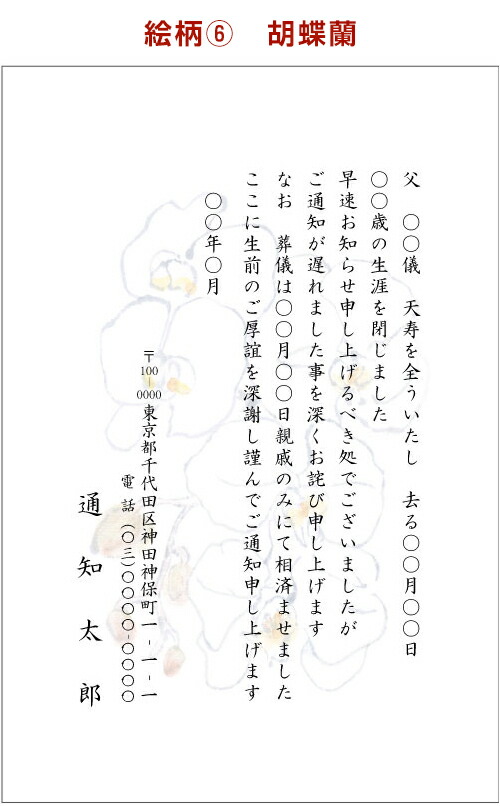 絵柄⑥　胡蝶蘭
父　〇〇儀　天寿を全ういたし　去る〇〇月〇〇日
〇〇歳の生涯を閉じました
早速お知らせ申し上げるべき処でございましたが
ご通知が遅れました事を深くお詫び申し上げます
なお　葬儀は〇〇月〇〇日親戚のみにて相済ませました
ここに生前のご厚誼を深謝し謹んでご通知申し上げます
〇〇年〇月
〒100-0000 東京都千代田区神田神保町一-一-一
電話（〇三）〇〇〇〇-〇〇〇〇
通知太郎